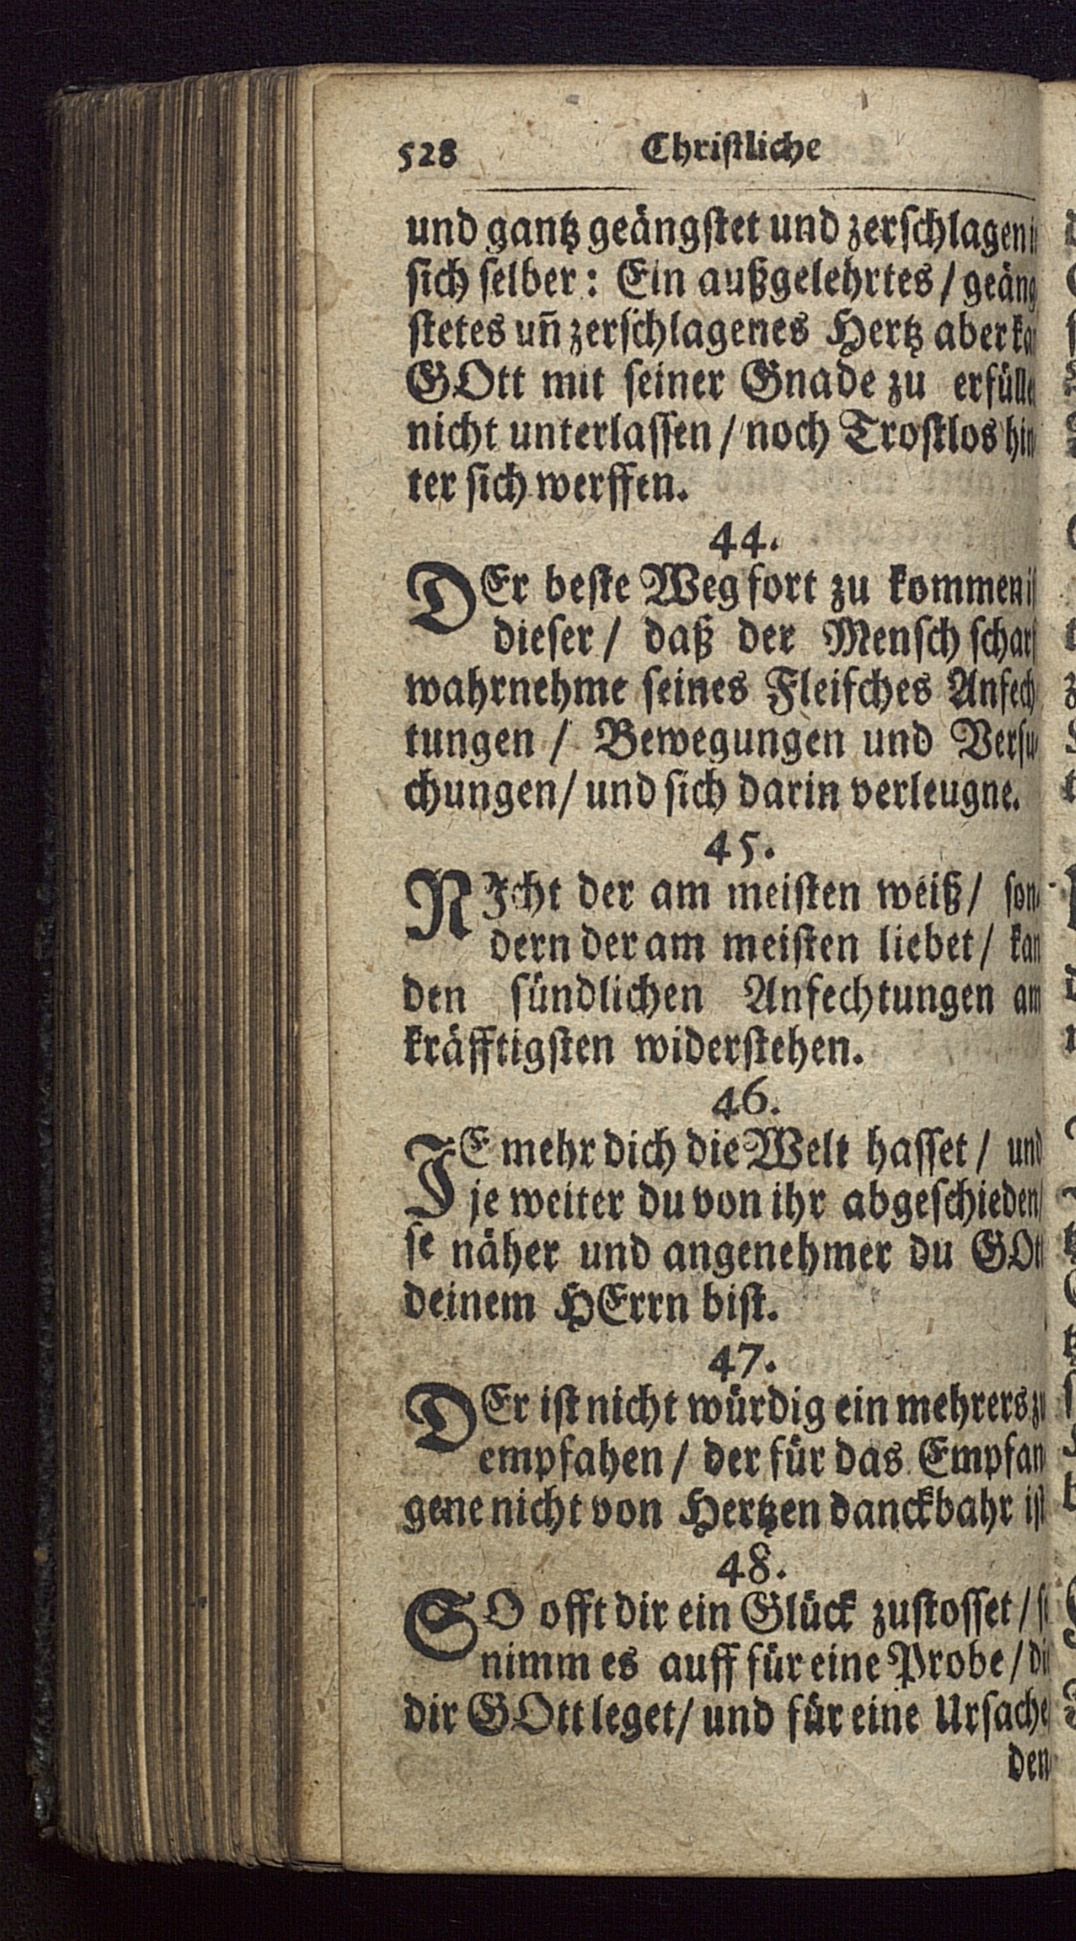 528 Christliche
und gantz geängstet und zerschlagen
sich selber: Ein außgelehrtes / geäng
stetes uñ zerschlagenes Hertz aber
GOtt mit seiner Gnade zu erfülle
nicht unterlassen / noch Trostlos hin
ter sich werffen.
44.
DEr beste Weg fort zu kommen
dieser / daß der Mensch scharf
wahrnehme seines Fleisches Anfech
tungen / Bewegungen und Versu
chungen / und sich darin verleugne.
45.
NIcht der am meisten weiß / son-
dern der am meisten liebet / kan
den sündlichen Anfechtungen am
kräfftigsten widerstehen.
46.
JE mehr dich die Welt hasset / und
je weiter du von ihr abgeschieden /
je näher und angenehmer du GOtt
deinem HErrn bist.
47.
DEr ist nicht würdig ein mehrers zu
empfahen / der für das Empfan
gene nicht von Hertzen danckbahr ist
48.
SO offt dir ein Glück zustosset /
nimm es auff für eine Probe / die
dir GOtt leget / und für eine Ursache
den